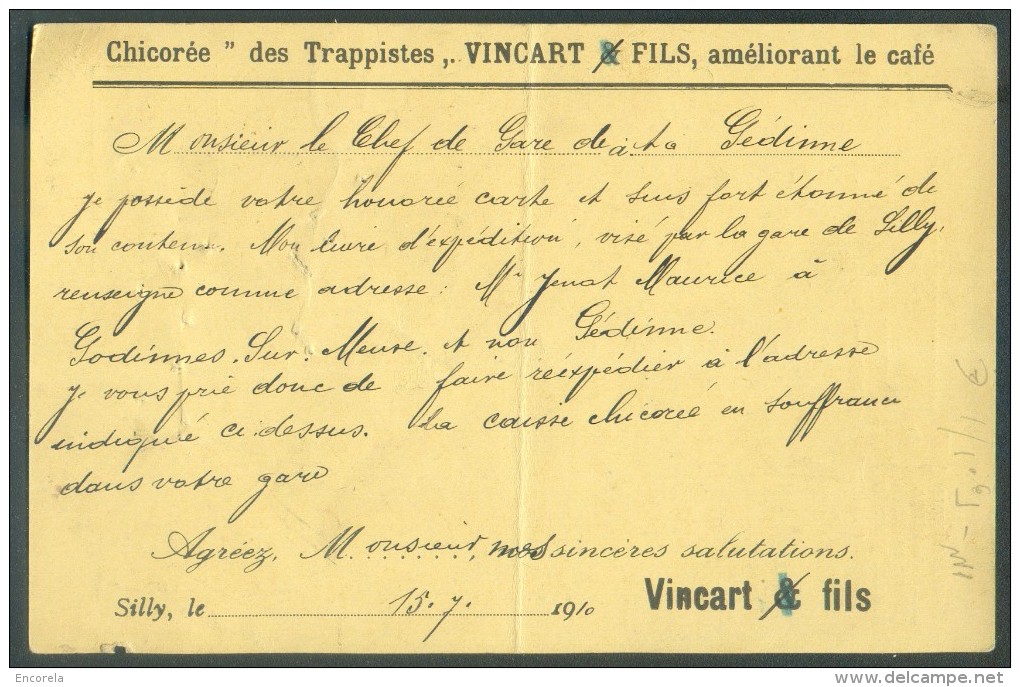 Chicorée " des Trappistes „. VINCART & FILS, améliorant le café
Monsieur le Chef de Gare de à Gédinne
Je possède votre honorée carte et suis fort étonné de
son contenu. Mon livre d'expédition, visé par la gare de Silly,
renseigne comme adresse: Mr Jenot Maurice à
Godinnes. Sur. Meuse. et non Gédinne.
Je vous prie donc de faire réexpédier à l'adresse
indiqué ci-dessus. La caisse chicorée en souffrance
dans votre gare
Agréez, Monsieur, mes sincères salutations.
Silly, le 15.7. 1910 Vincart & fils
Encorela
www.delcampe.net